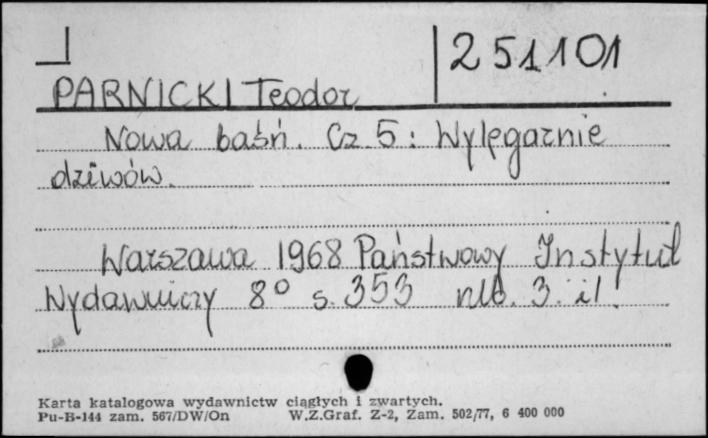 251101
PARNICKI Teodor
Nowa baśń. Cz. 5: Wylęgarnie
dziwów.
Warszawa 1968 Państwowy Instytut
Wydawniczy 8° s. 353 nlb. 3. il.
Karta katalogowa wydawnictw ciągłych i zwartych.
Pu-B-144 zam. 567/DW/On W.Z.Graf. Z-2, Zam. 502/77, 6 400 000